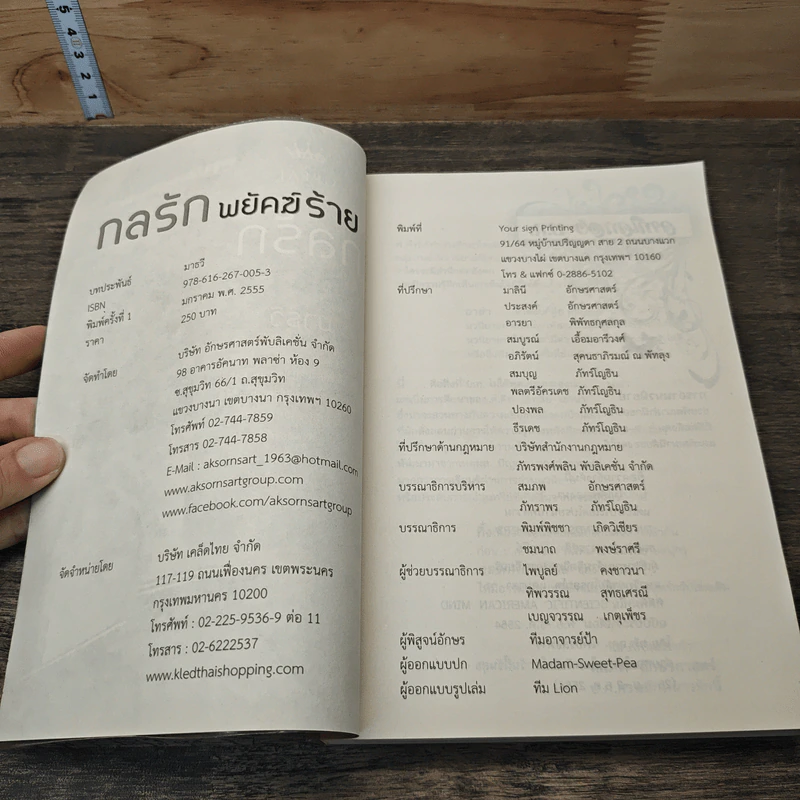 กลรัก พยัคฆ์ร้าย
บทประพันธ์ มาธวี
ISBN 978-616-267-005-3
พิมพ์ครั้งที่ 1 มกราคม พ.ศ. 2555
ราคา 250 บาท
จัดทำโดย บริษัท อักษรศาสตร์พับลิเคชั่น จำกัด
98 อาคารอัคนาท พลาซ่า ห้อง 9
ซ.สุขุมวิท 66/1 ถ.สุขุมวิท
แขวงบางนา เขตบางนา กรุงเทพฯ 10260
โทรศัพท์ 02-744-7859
โทรสาร 02-744-7858
E-Mail : aksornsart_1963@hotmail.com
www.aksornsartgroup.com
www.facebook.com/aksornsartgroup
จัดจำหน่ายโดย บริษัท เคล็ดไทย จำกัด
117-119 ถนนเฟื่องนคร เขตพระนคร
กรุงเทพมหานคร 10200
โทรศัพท์ : 02-225-9536-9 ต่อ 11
โทรสาร : 02-6222537
www.kledthaishopping.com
พิมพ์ที่ Your sign Printing
91/64 หมู่บ้านปริญญดา สาย 2 ถนนบางแวก
แขวงบางไผ่ เขตบางแค กรุงเทพฯ 10160
โทร & แฟกซ์ 0-2886-5102
ที่ปรึกษา มาลินี อักษรศาสตร์
ประสงค์ อักษรศาสตร์
อารยา พิพัทธกุศลกุล
สมบูรณ์ เอื้อมอารีวงศ์
อภิรัตน์ สุคนธาภิรมณ์ ณ พัทลุง
สมบุญ ภัทร์โญธิน
พลตรีอัครเดช ภัทร์โญธิน
ปองพล ภัทร์โญธิน
ธีรเดช ภัทร์โญธิน
ที่ปรึกษาด้านกฎหมาย บริษัทสำนักงานกฎหมาย
ภัทรพงศ์พลิน พับลิเคชั่น จำกัด
บรรณาธิการบริหาร สมภพ อักษรศาสตร์
ภัทราพร ภัทร์โญธิน
บรรณาธิการ พิมพ์พิชชา เกิดวิเชียร
ชมนาถ พงษ์ราศรี
ผู้ช่วยบรรณาธิการ ไพบูลย์ คงชาวนา
ทิพวรรณ สุทธเศรณี
เบญจวรรณ เกตุเพ็ชร
ผู้พิสูจน์อักษร ทีมอาจารย์ป้า
ผู้ออกแบบปก Madam-Sweet-Pea
ผู้ออกแบบรูปเล่ม ทีม Lion
5 4 3 2 1